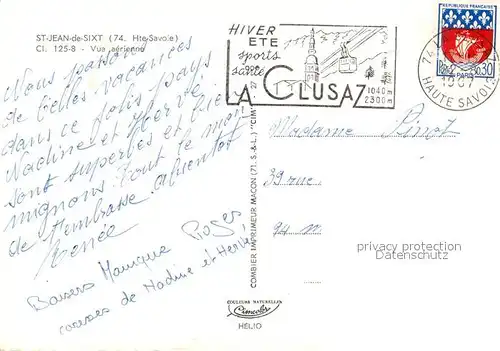 ST-JEAN-de-SIXT (74. Hte-Savoie)
Cl. 125-8 - Vue aérienne
HIVER
ETE
sports
santé
LA CLUSAZ
1040 m
2300 m
REPUBLIQUE FRANÇAISE
0.30
PARIS
1967
HAUTE SAVOIE
Nous passons
de belles vacances
dans ce joli pays
Nadine et Hervé
sont superbes et bien
mignons. Tout le monde
de t'embrasse. A bientôt
Renée
Baisers Monique Roger
caresses de Nadine et Hervé
Madame Pinot
39 rue
94
COMBIER IMPRIMEUR MACON (71. S.-&-L.) "CIM"
COULEURS NATURELLES
Cimcolor
HÉLIO
privacy protection
Datenschutz